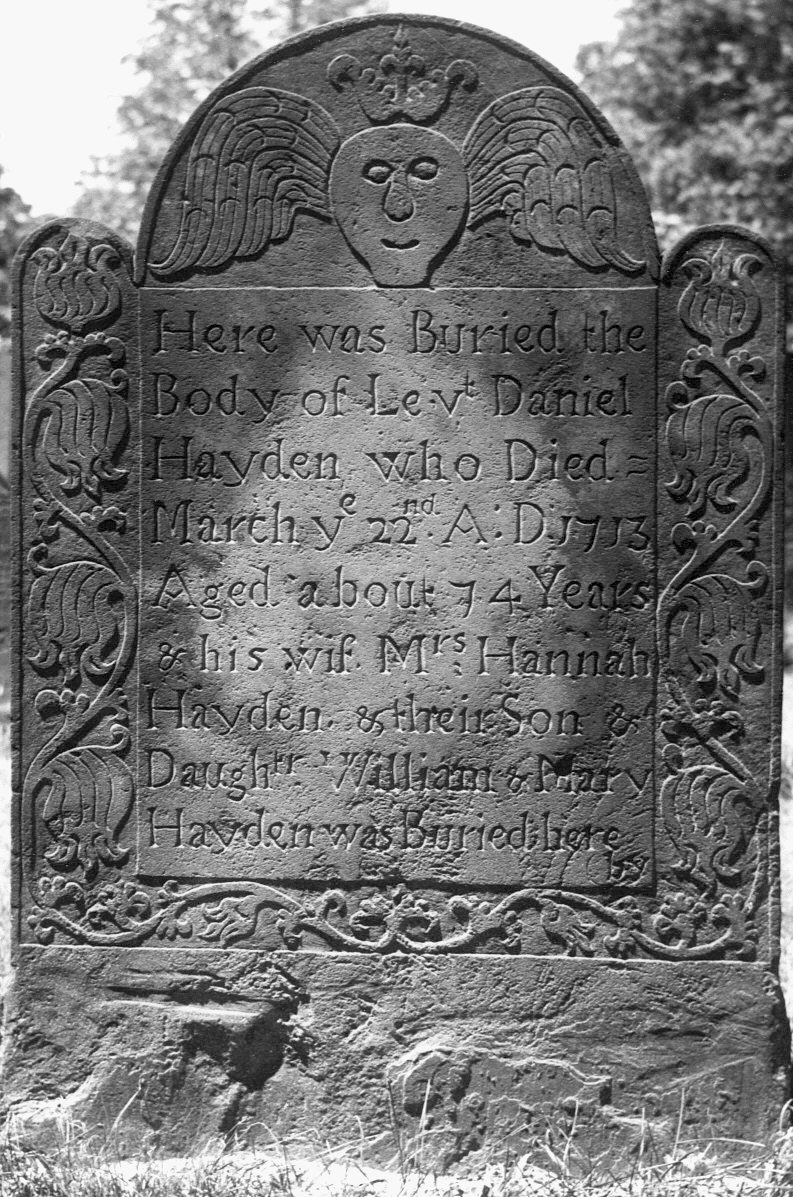 Here was Buried the
Body of Levt Daniel
Hayden who Died =
March ye 22nd A:D:1713
Aged about 74 Years
& his wif Mrs Hannah
Hayden. & their Son &
Daughtr William & Mary
Hayden was Buried here
by